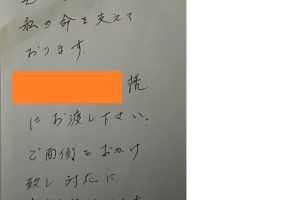 私の命を支えて
おります。
様
にお渡し下さい。
ご面倒をおかけ
致し対応に